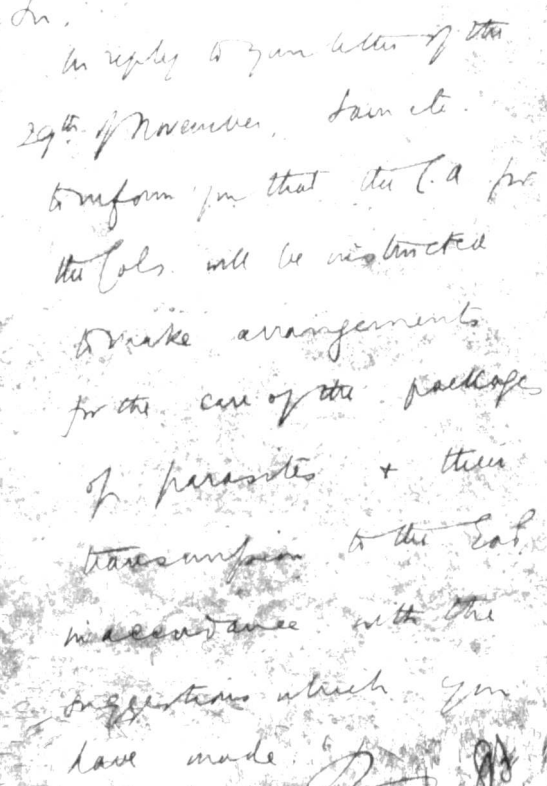 Sir,
In reply to your letter of the
29th of November, I am etc.
to inform you that the C.A for
the Cols will be instructed
to make arrangements
for the care of the packages
of parasites + their
transmission to the
in accordance with the
suggestions which you
have made.